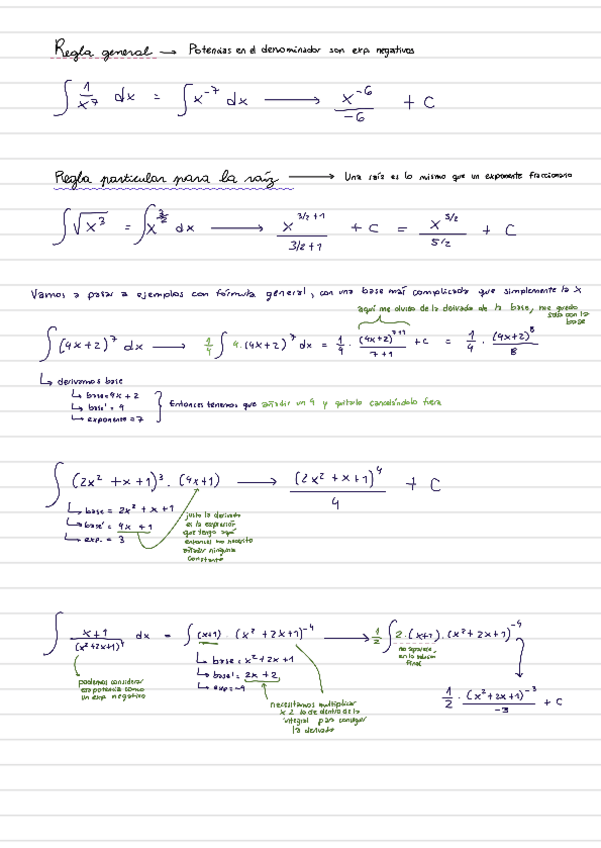 Regla general → Potencias en el denominador son exp negativos
∫ 1/x⁷ dx = ∫ x⁻⁷ dx → x⁻⁶/-6 + C
Regla particular para la raíz → Una raíz es lo mismo que un exponente fraccionario
∫ √x³ = ∫ x^(3/2) dx → x^(3/2+1)/(3/2+1) + C = x^(5/2)/(5/2) + C
Vamos a pasar a ejemplos con fórmula general, con una base más complicada que simplemente la x
aquí me olvido de la derivada de la base, me quedo
solo con la
base
∫ (4x+2)⁷ dx → 1/4 ∫ 4·(4x+2)⁷ dx = 1/4 · (4x+2)^(7+1)/(7+1) + C = 1/4 · (4x+2)⁸/8
↳ derivamos base
↳ base=4x+2
↳ base' = 4
↳ exponente = 7
Entonces tenemos que añadir un 4 y quitarlo cancelándolo fuera
∫ (2x² + x + 1)³ · (4x+1) → (2x² + x + 1)⁴/4 + C
↳ base = 2x² + x + 1
↳ base' = 4x + 1
↳ exp. = 3
justo la derivada
es la expresión
que tengo aquí
entonces no necesito
añadir ninguna
constante
∫ x+1/(x²+2x+1)⁴ dx = ∫ (x+1) · (x² + 2x+1)⁻⁴ → 1/2 ∫ 2·(x+1)·(x²+2x+1)⁻⁴
podemos considerar
esa potencia como
un exp. negativo
↳ base = x² + 2x + 1
↳ base' = 2x + 2
↳ exp=-4
necesitamos multiplicar
x 2 lo de dentro de la
integral para conseguir
la derivada
no aparece
en la solución
final
1/2 · (x²+2x+1)⁻³/-3 + C